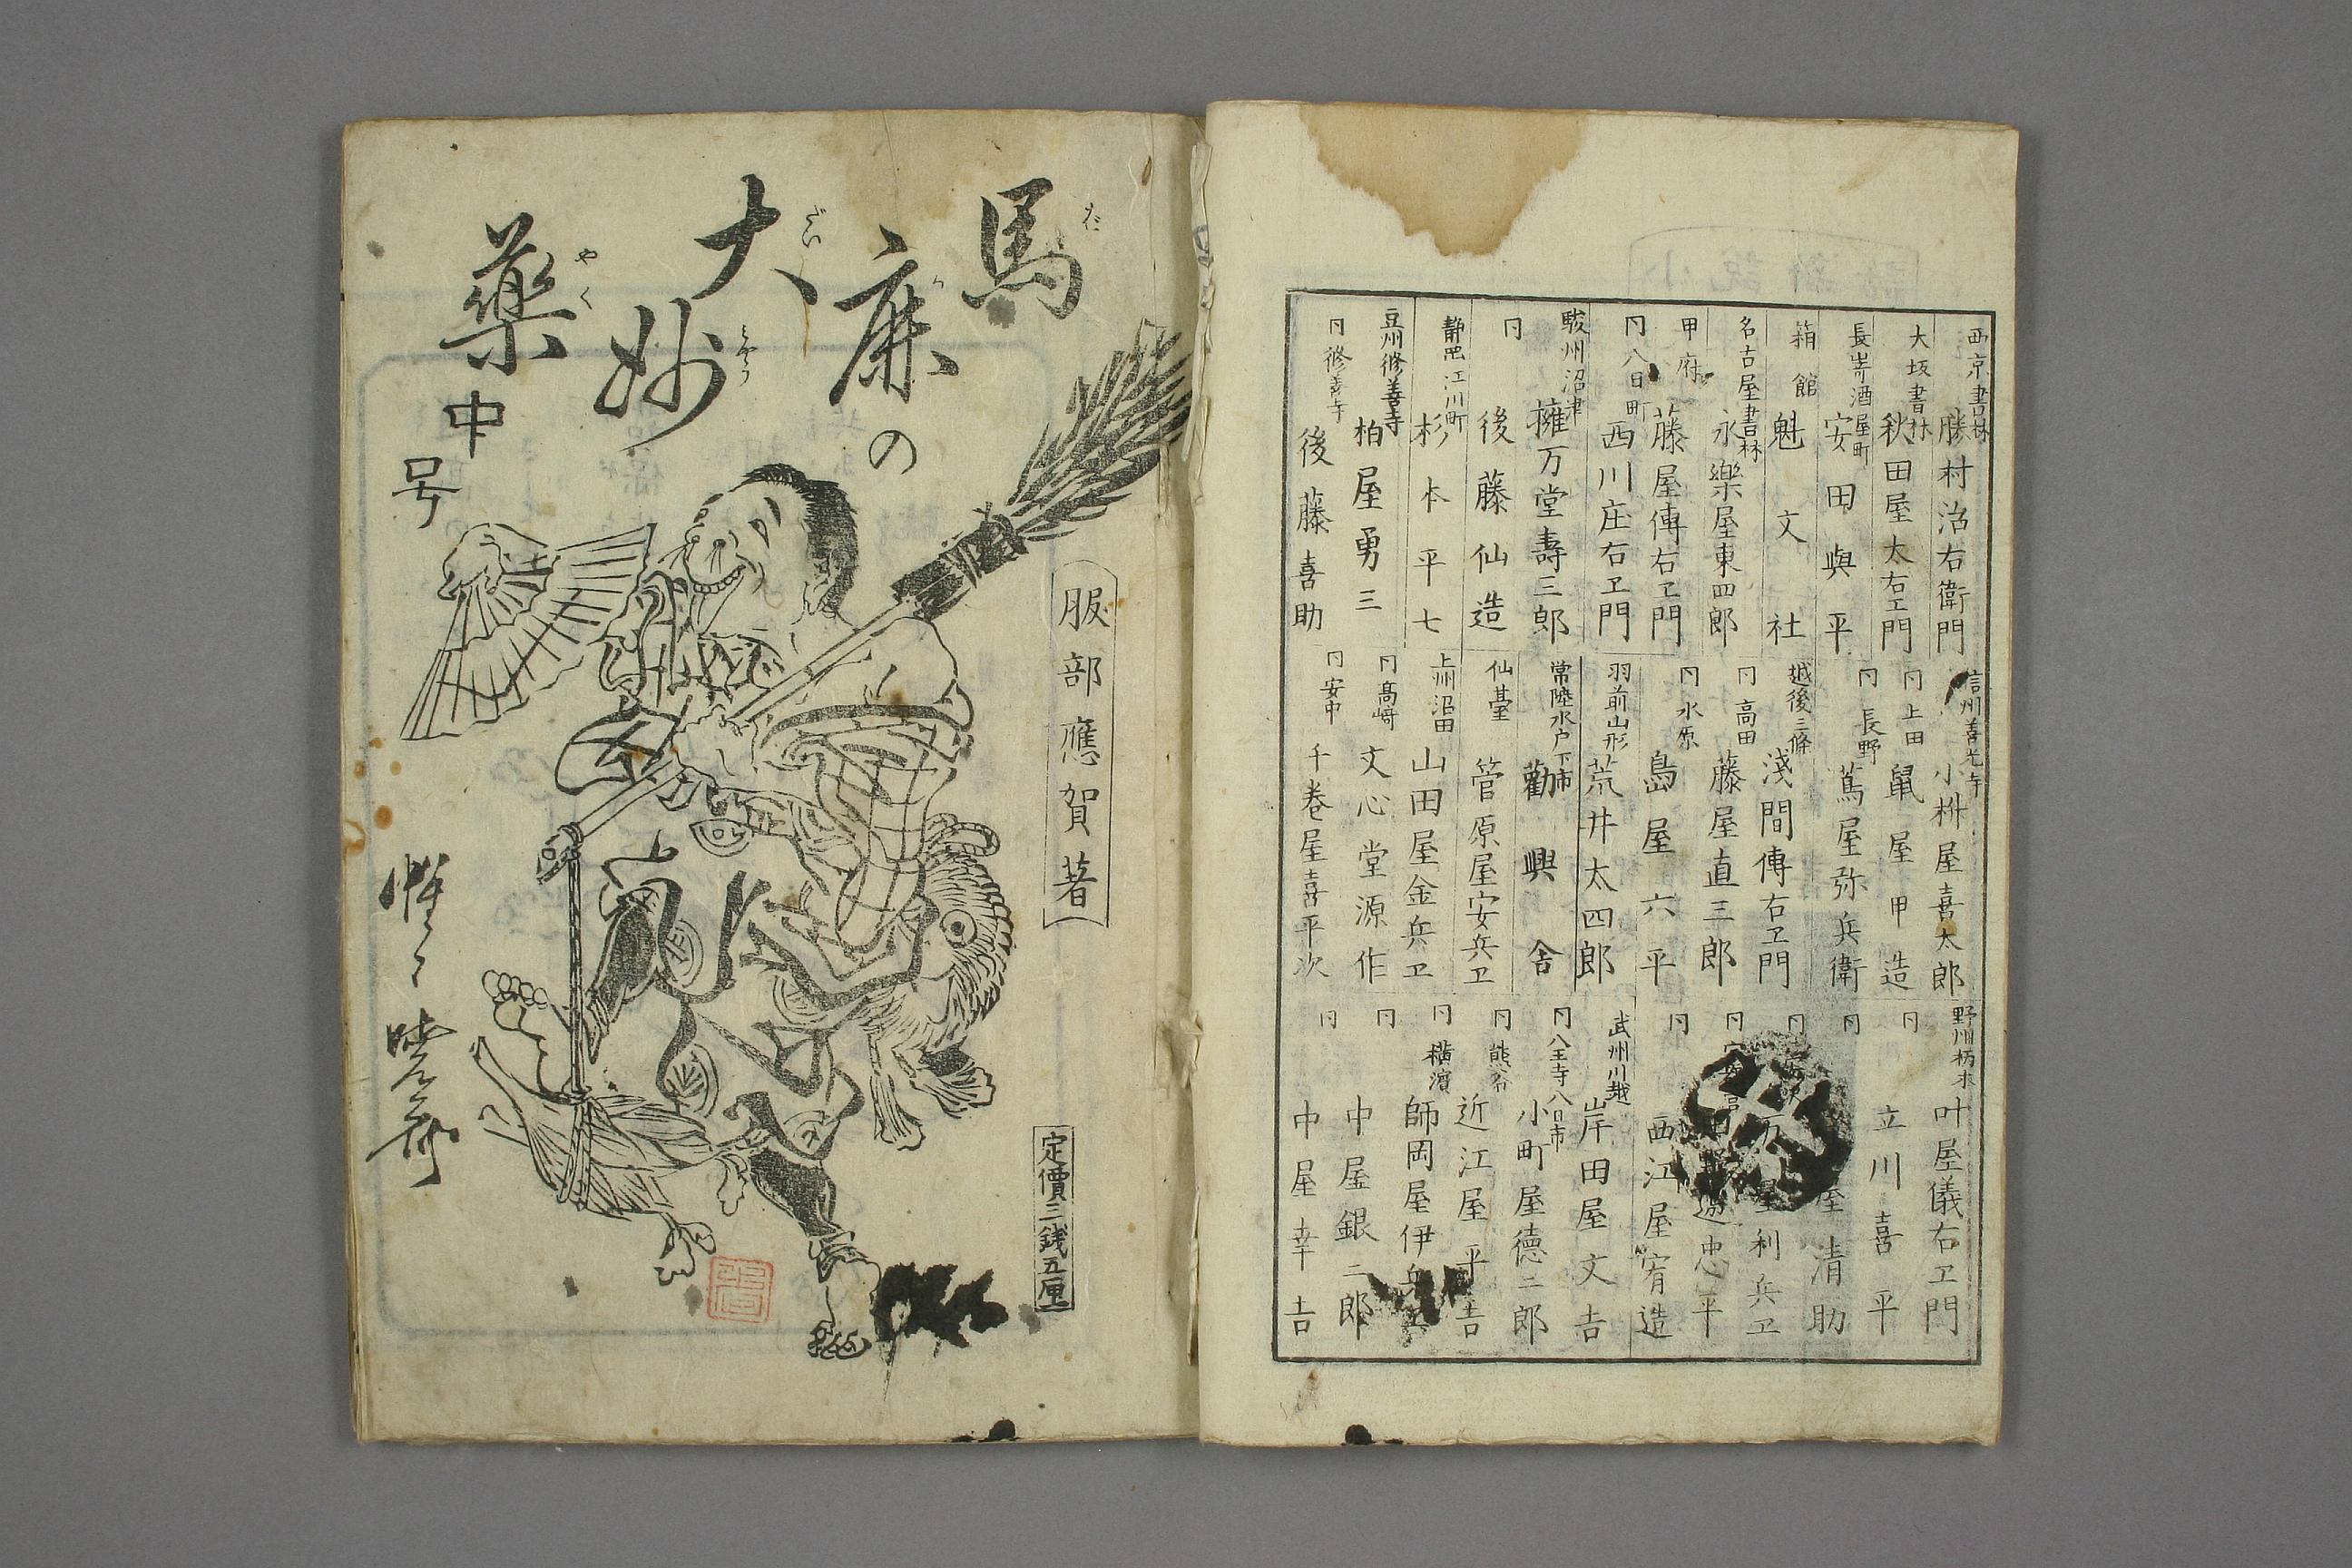 西京書林 勝村治右衛門
大坂書林 秋田屋太右エ門
長崎酒屋町 安田與平
箱館 魁文社
名古屋書林 永樂屋東四郎
甲府 藤屋傳右エ門
仝 八日町 西川庄右エ門
駿州沼津 擁万堂壽三郎
仝 後藤仙造
静岡江川町 杉本平七
豆州修善寺 柏屋勇三
仝 修善寺 後藤喜助
信州善光寺 小桝屋喜太郎
仝 上田 鼠屋甲造
仝 長野 蔦屋弥兵衛
越後三條 淺間傳右エ門
仝 高田 藤屋直三郎
仝 水原 島屋六平
羽前山形 荒井太四郎
常陸水戸下市 勸興舎
仙臺 管原屋安兵エ
上州沼田 山田屋金兵エ
仝 髙﨑 文心堂源作
仝 安中 千巻屋喜平次
野州栃木 叶屋儀右エ門
仝 立川喜平
仝 屋清助
仝 万屋利兵エ
仝 邉忠平
仝 西江屋宥造
武州川越 岸田屋文吉
仝 八王寺八日市 小町屋徳二郎
仝 熊谷 近江屋平吉
仝 横濱 師岡屋伊兵エ
仝 中屋銀二郎
仝 中屋幸吉
馬廉の
大妙
藥中号
だ
ら
だい
みやう
やく
服部應賀著
定價三銭五厘
惺々暁斎